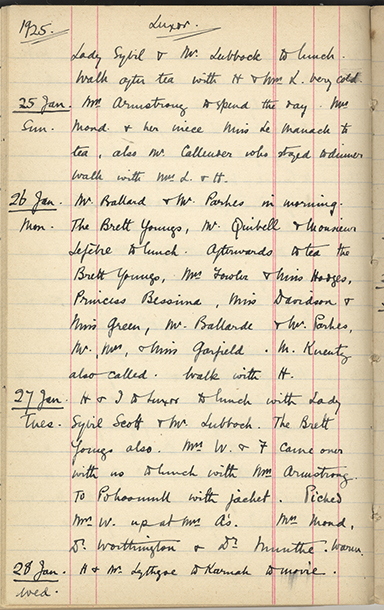 1925. Luxor.
Lady Sybil & Mr. Lubbock to lunch.
Walk after tea with H & Mrs L. very cold.
25 Jan. Mrs Armstrong to spend the day. Mrs
Sun. Mond & her niece Miss Le Manach to
tea, also Mr. Callender who stayed to dinner
Walk with Mrs L. & H.
26 Jan. Mr Ballard & Mr. Parkes in morning.
Mon. The Brett Youngs, Mr. Quibell & Monsieur
Lefebre to lunch. Afterwards to tea the
Brett Youngs, Mrs Fowler & Miss Hodges,
Princess Bessima, Miss Davidson &
Miss Green, Mr. Ballarde & Mr. Parkes,
Mr. Mrs, & Miss Garfield. M. Kuentz
also called. Walk with H.
27 Jan. H & I to Luxor to lunch with Lady
Tues. Sybil Scott & Mr. Lubbock. The Brett
Youngs also. Mrs W. & F came over
with us to lunch with Mrs Armstrong.
To with jacket. Picked
Mrs W. up at Mrs A's. Mrs Mond,
Dr. Worthington & Dr. Munthe. Warm.
28 Jan. H & Mr. Lythgoe to Karnak to movie.
Wed.